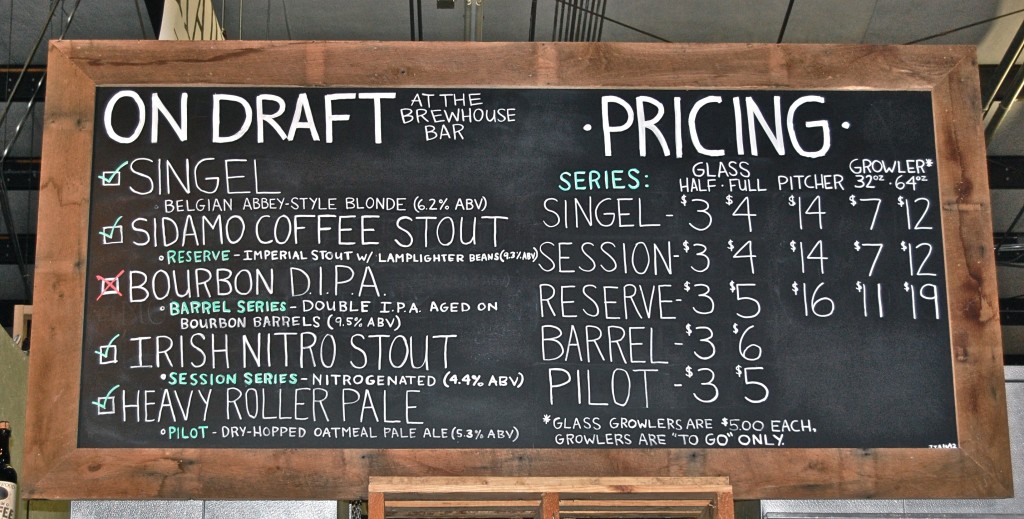 ON DRAFT AT THE
BREWHOUSE
BAR
SINGEL
BELGIAN ABBEY-STYLE BLONDE (6.2% ABV)
SIDAMO COFFEE STOUT
• RESERVE - IMPERIAL STOUT W/ LAMPLIGHTER BEANS (9.2% ABV)
BOURBON D.I.P.A.
• BARREL SERIES - DOUBLE I.P.A. AGED ON
BOURBON BARRELS (9.5% ABV)
IRISH NITRO STOUT
• SESSION SERIES - NITROGENATED (4.4% ABV)
HEAVY ROLLER PALE
• PILOT - DRY-HOPPED OATMEAL PALE ALE (5.3% ABV)
• PRICING •
SERIES: GLASS HALF • FULL PITCHER GROWLER* 32oz • 64oz
SINGEL - $3 $4 $14 $7 $12
SESSION - $3 $4 $14 $7 $12
RESERVE - $3 $5 $16 $11 $19
BARREL - $3 $6
PILOT - $3 $5
*GLASS GROWLERS ARE $5.00 EACH,
GROWLERS ARE "TO GO" ONLY.